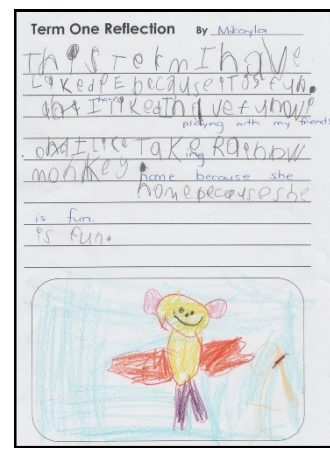 Term One Reflection By Mikayla
This Term I have
Liked PE because it as fun.
and I liked having fun
playing with my friends
and I like Taking Rainbow
monkey home because she
home because she
is fun.
is fun.